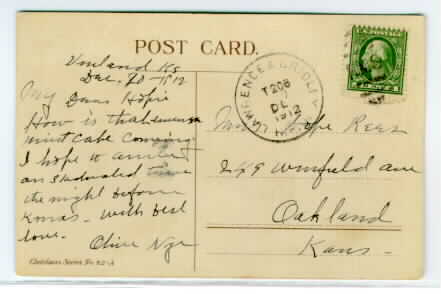 POST CARD.
Vinland Ks
Dec. 20 - 1912
My Dear Hopie
How is that
mint cake coming
I hope to arrive
on skeduled time
the night before
Xmas - with best
love.
Olive Nye
Christmas Series No 82-A
LAWRENCE & GRIDLEY
T208
DE
1912
Hope Rees
249 Winfield ave
Oakland
Kans -